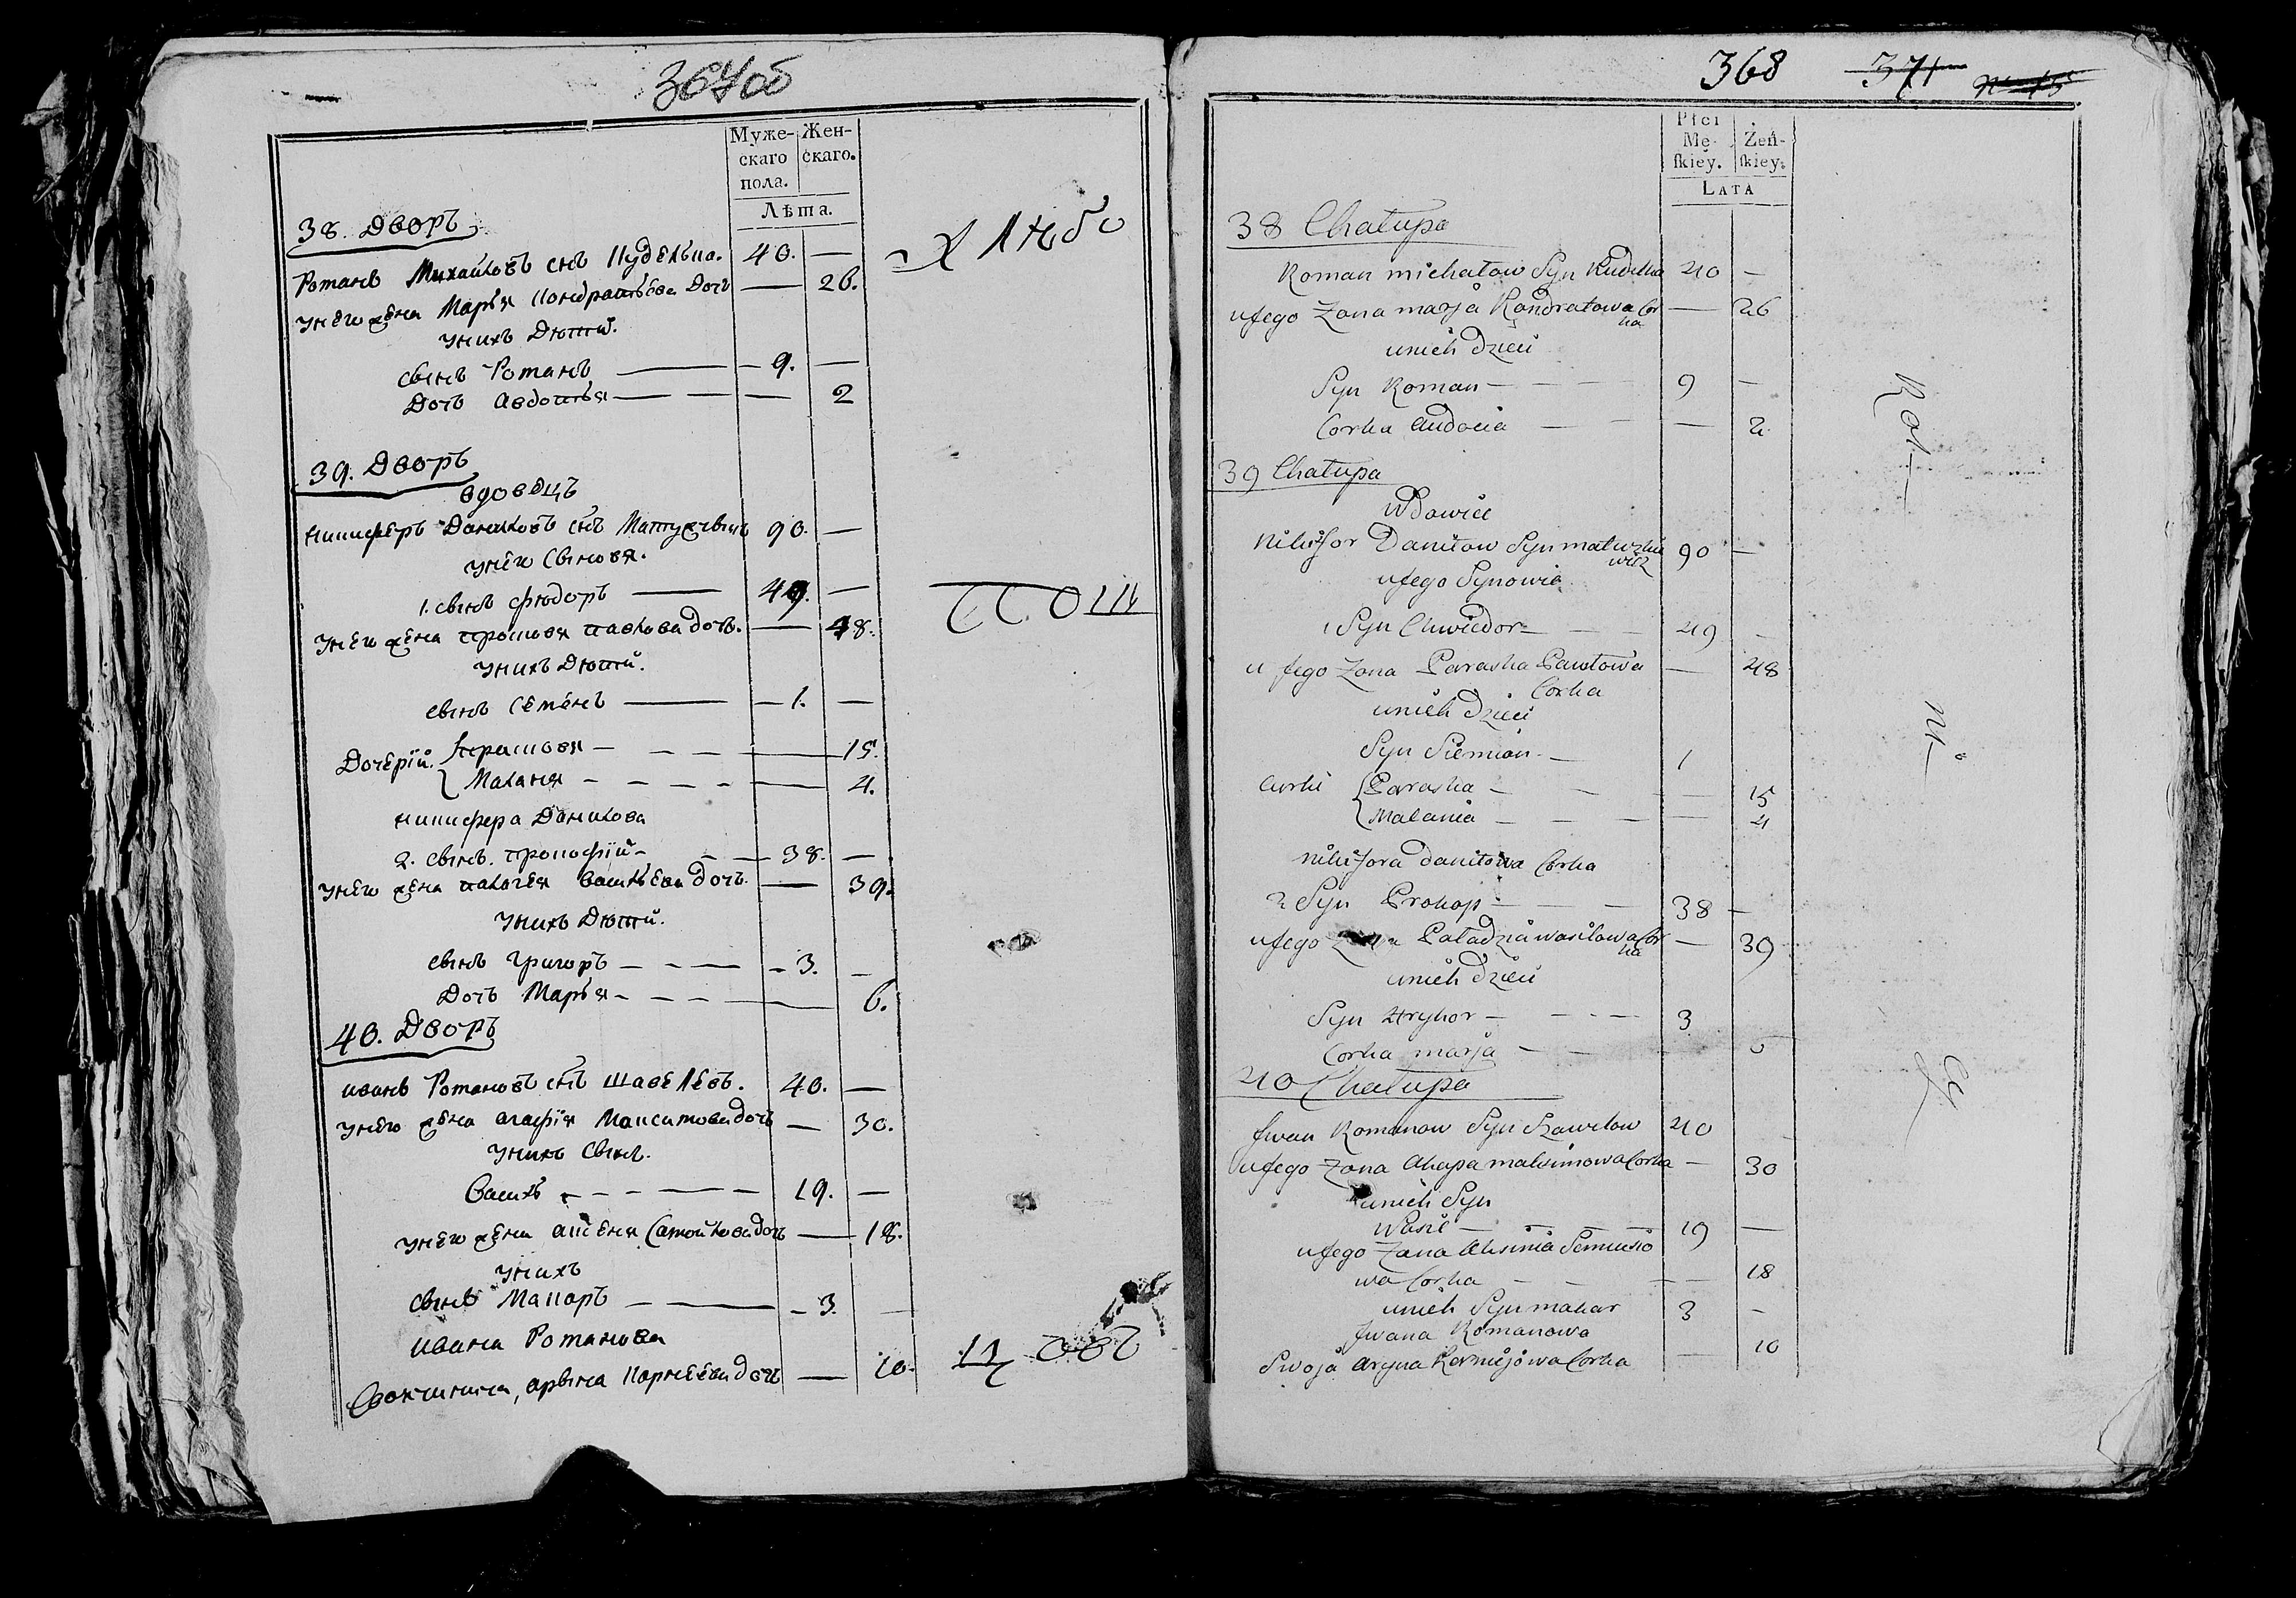 367об
Муже- Жен-
скаго скаго.
пола.
Лѣта.
38. Дворъ
Романъ Михайловъ снъ Куделка. 40. —
унего жена Марья Кондратьева Дочь — 26.
унихъ Дѣтй.
сынъ Романъ — 9. —
Дочь Авдотья — — 2
Хлѣбо
39. Дворъ
вдовецъ
никиферъ Даниловъ снъ Матузкевичъ 90. —
унего Сыновя.
1. сынъ Фюдоръ — 49. —
унего жена прасковя павлова дочь. — 48.
унихъ Дѣтй.
сынъ Семенъ — 1. —
Дочерїй. прасковя — 15.
Маланя — 4.
никифера Данилова
2. сынъ. прокофїй — 38. —
унего жена палагея василѣва дочь. — 39.
унихъ Дѣтй.
сынъ Григоръ — 3. —
Дочь Марья — 6.
пош
40. Дворъ
иванъ Романовъ снъ шавелевъ. 40. —
унего жена агафїя Максимова дочь — 30.
унихъ Сынъ.
Василь — 19. —
унего жена аксеня Самойлова дочь — 18.
унихъ
сынъ Макаръ — 3. —
ивана Романова
Своячиница, арына Карнеева дочь — 10.
368 371
Płci
Mę- Żeń-
ſkiey. ſkiey.
LATA
38 Chałupa
Roman michałow Syn Kudelka 40 —
u jego Zona marja Kandratowa Cor
ka — 26
unich dzieci
Syn Roman — 9 —
Corka Audocia — — 2
39 Chałupa
Wdowiec
Nikifor Daniłow Syn matuzkie
wicz 90 —
u jego Synowie
1 Syn Chwiedor — 49 —
u jego Zona Paraska Pawłowa — 48
Corka
unich dzieci
Syn Siemian — 1
Curki Paraska — — 15
Malania — — 4
nikifora daniłowa Corka
2 Syn Prokop — 38 —
u jego Zona Paładzia wasilowa Cor
ka — 39
unich dzieci
Syn Hryhor — 3
Corka marja —
40 Chałupa
Jwan Romanow Syn Szawelow 40
u jego Zona Ahapa maksimowa Corka — 30
unich Syn
Wasil — 19 —
u jego Zona Aksinia Semusio
wa Corka — — 18
unich Syn makar 3 —
Jwana Romanowa
Swoja aryna Karniejowa Corka — 10